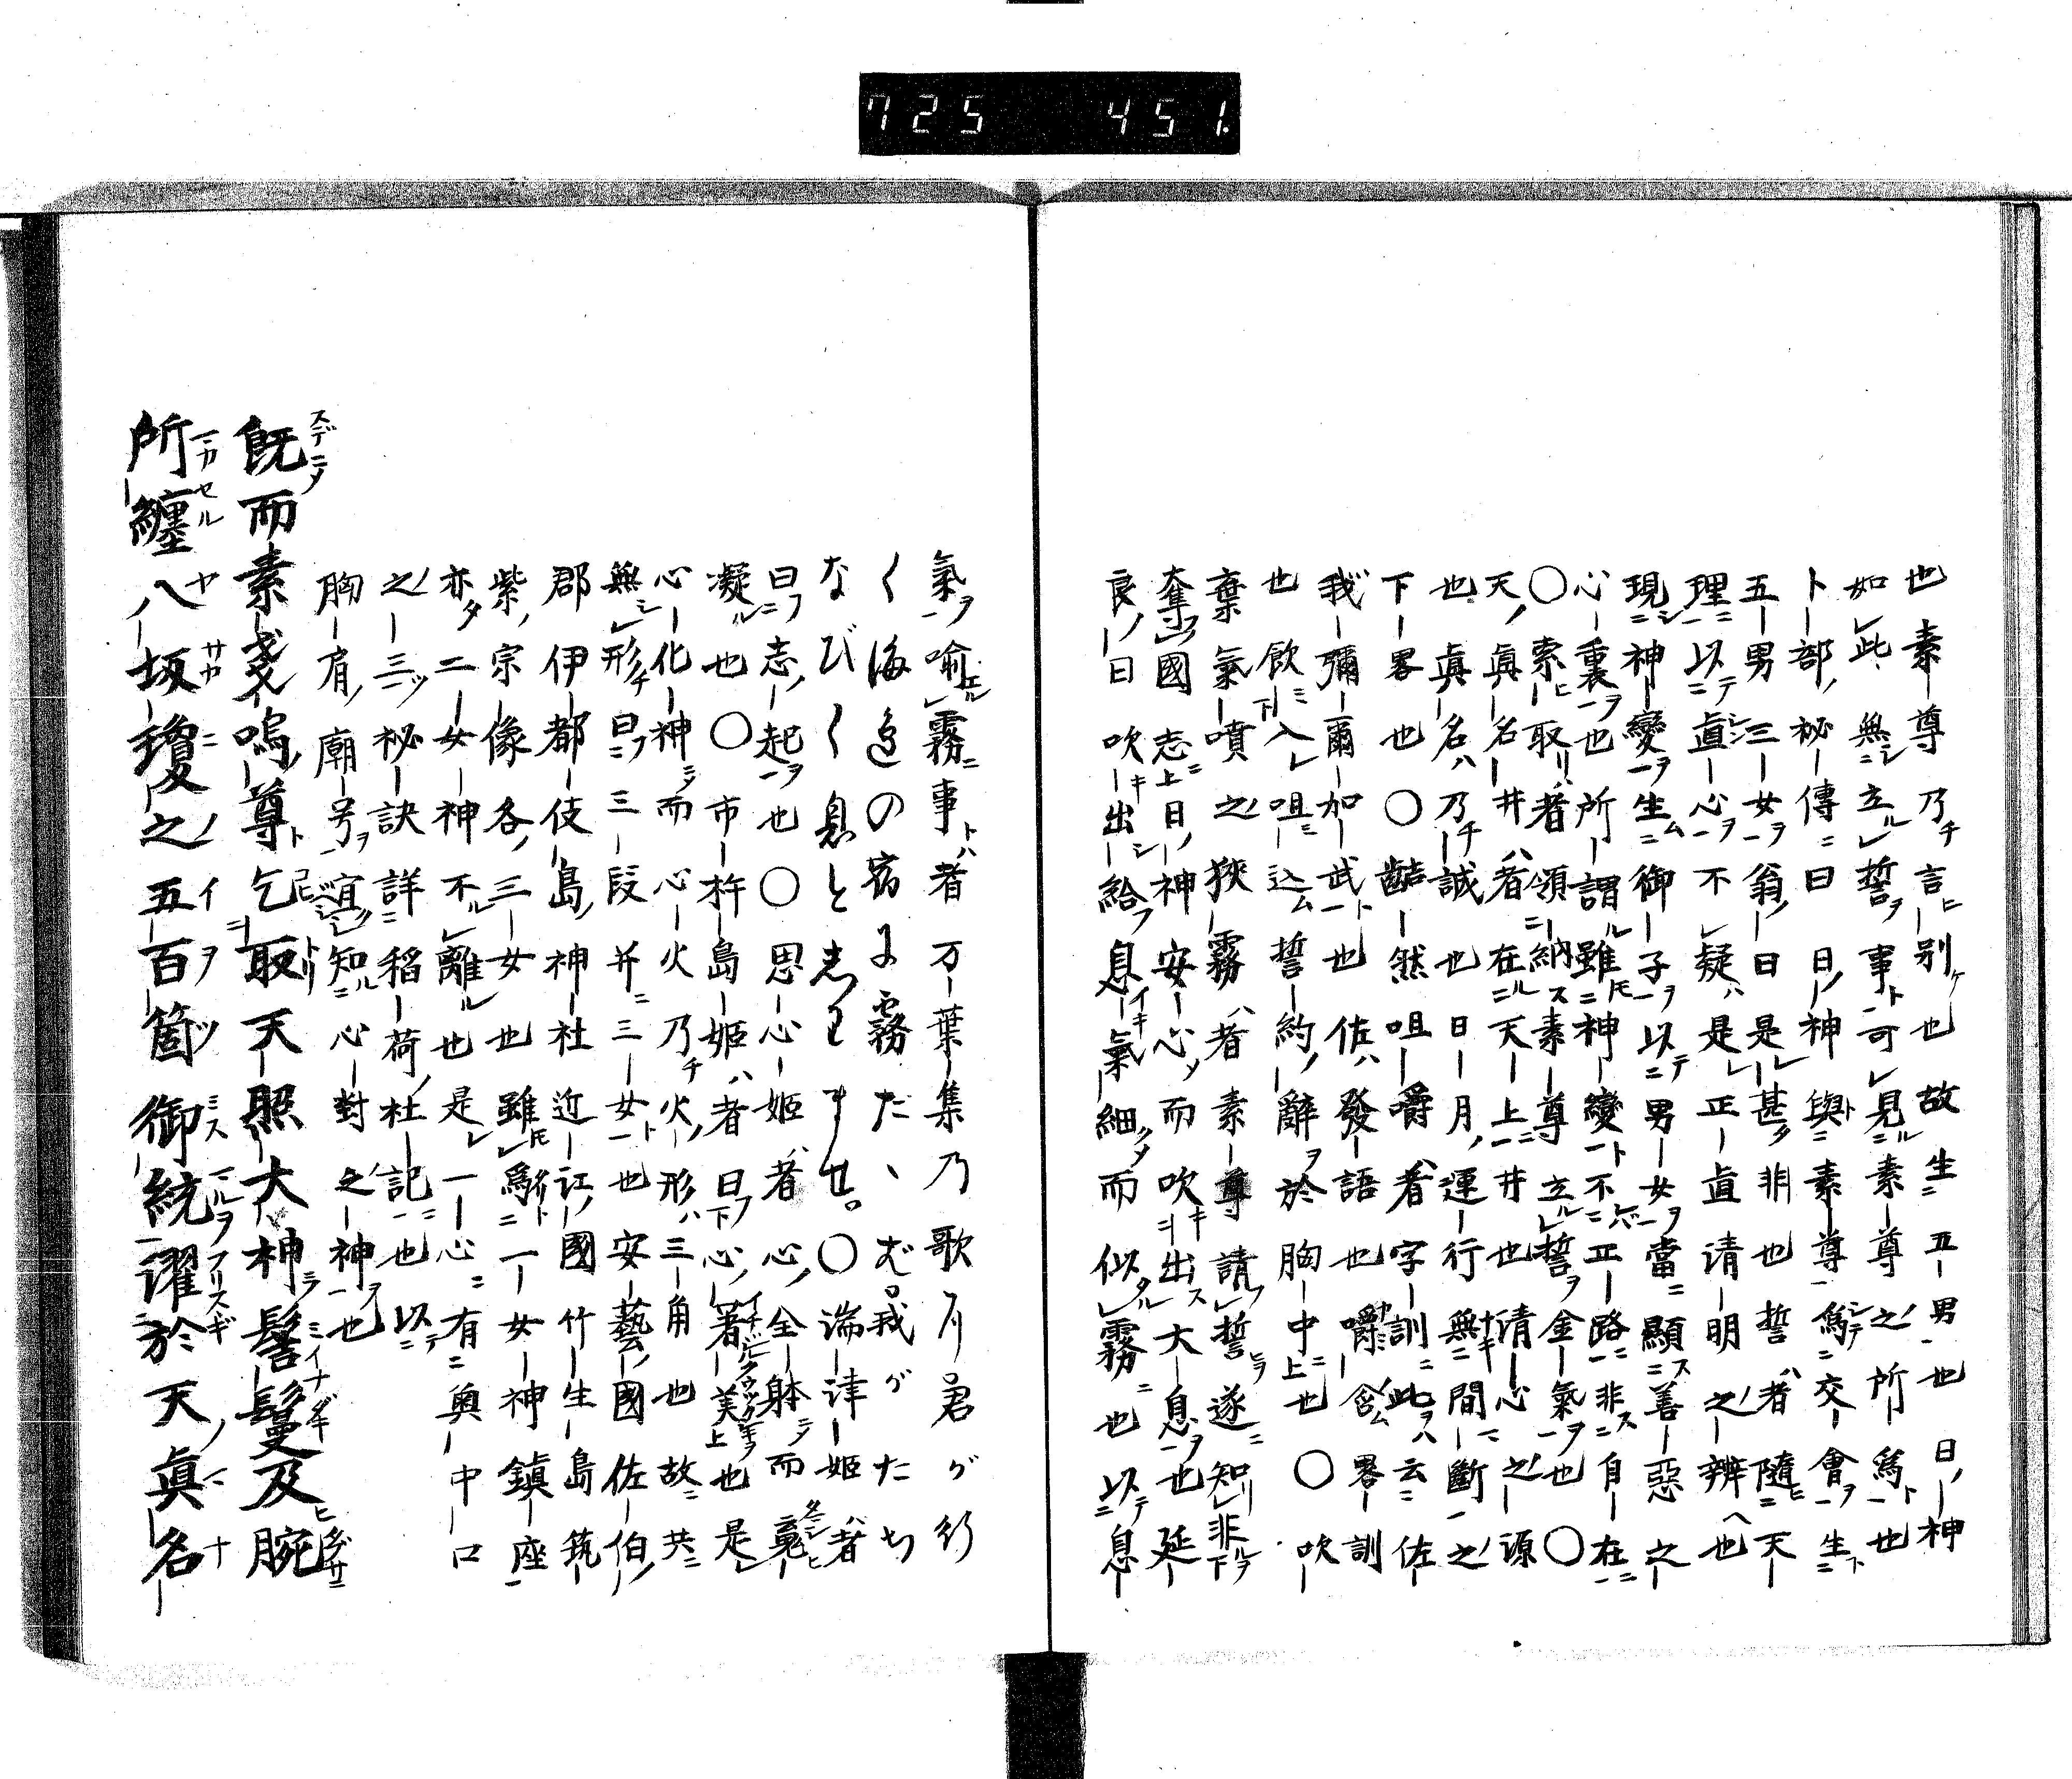 725 451.
也素尊乃言別也故生五男也日神
如此無立誓事可見素尊之所爲也
卜部秘傳曰日神與素尊爲交會生
五男三女翁曰是甚非也誓者隨天
理以直心不疑是正直清明之辨也
現神變生御子以男女當顯善惡之
心重裏也所謂雖神變不正路非自在
○索取者領納素尊立誓金氣也○
天眞名井者在天上井也清心之源
也眞名乃誠也日月運行無間斷之
下畧也○齧然咀嚼者字訓此云佐
我彌爾加武也佐發語也嚼含畧訓
也飲入咀込誓約辭於胸中也○吹
棄氣噴之狹霧者素尊請誓遂知非
奪國志日神安心而吹出大息也延
良曰吹出給息氣細而似霧也以息
氣喻霧事者万葉集乃歌尓君が行
く海邊の宿に霧たゝば我がたち
なびく息としりませ○端津姫者
曰志起也○思心姫者心全躰而竟
凝也○市杵島姫者曰心著美也是
心化神而心火乃火形三角也故共
無形曰三段并三女也安藝國佐伯
郡伊都伎島神社近江國竹生島筑
紫宗像各三女也雖爲一女神鎮座
亦二女神不離也是一心有奥中口
之三秘訣詳稻荷社記也以
胸肩廟号宜知心對之神也
既而素戔嗚尊乞取天照大神髻鬘及腕
所纏八坂瓊之五百箇御統濯於天眞名